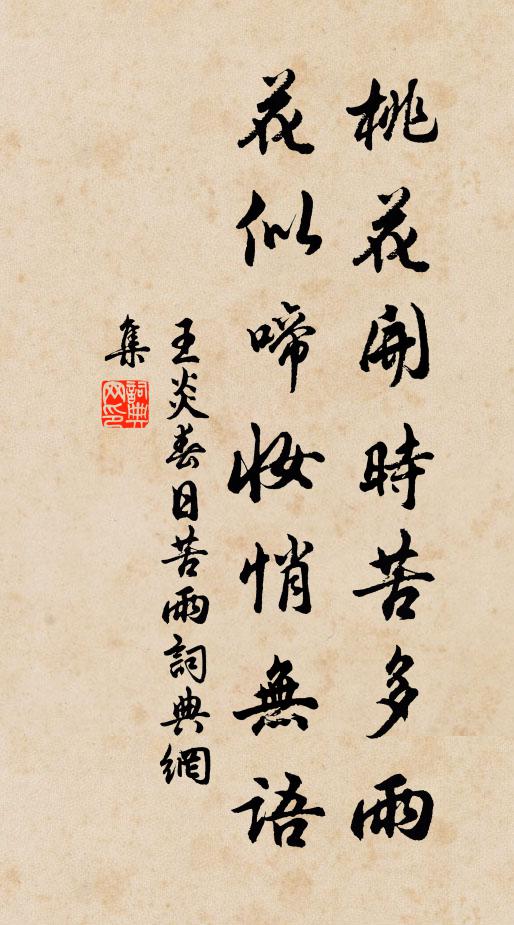 桃花開時苦多雨
花似啼妝悄無語
王炎春日苦雨詞典網
集
詞典網印